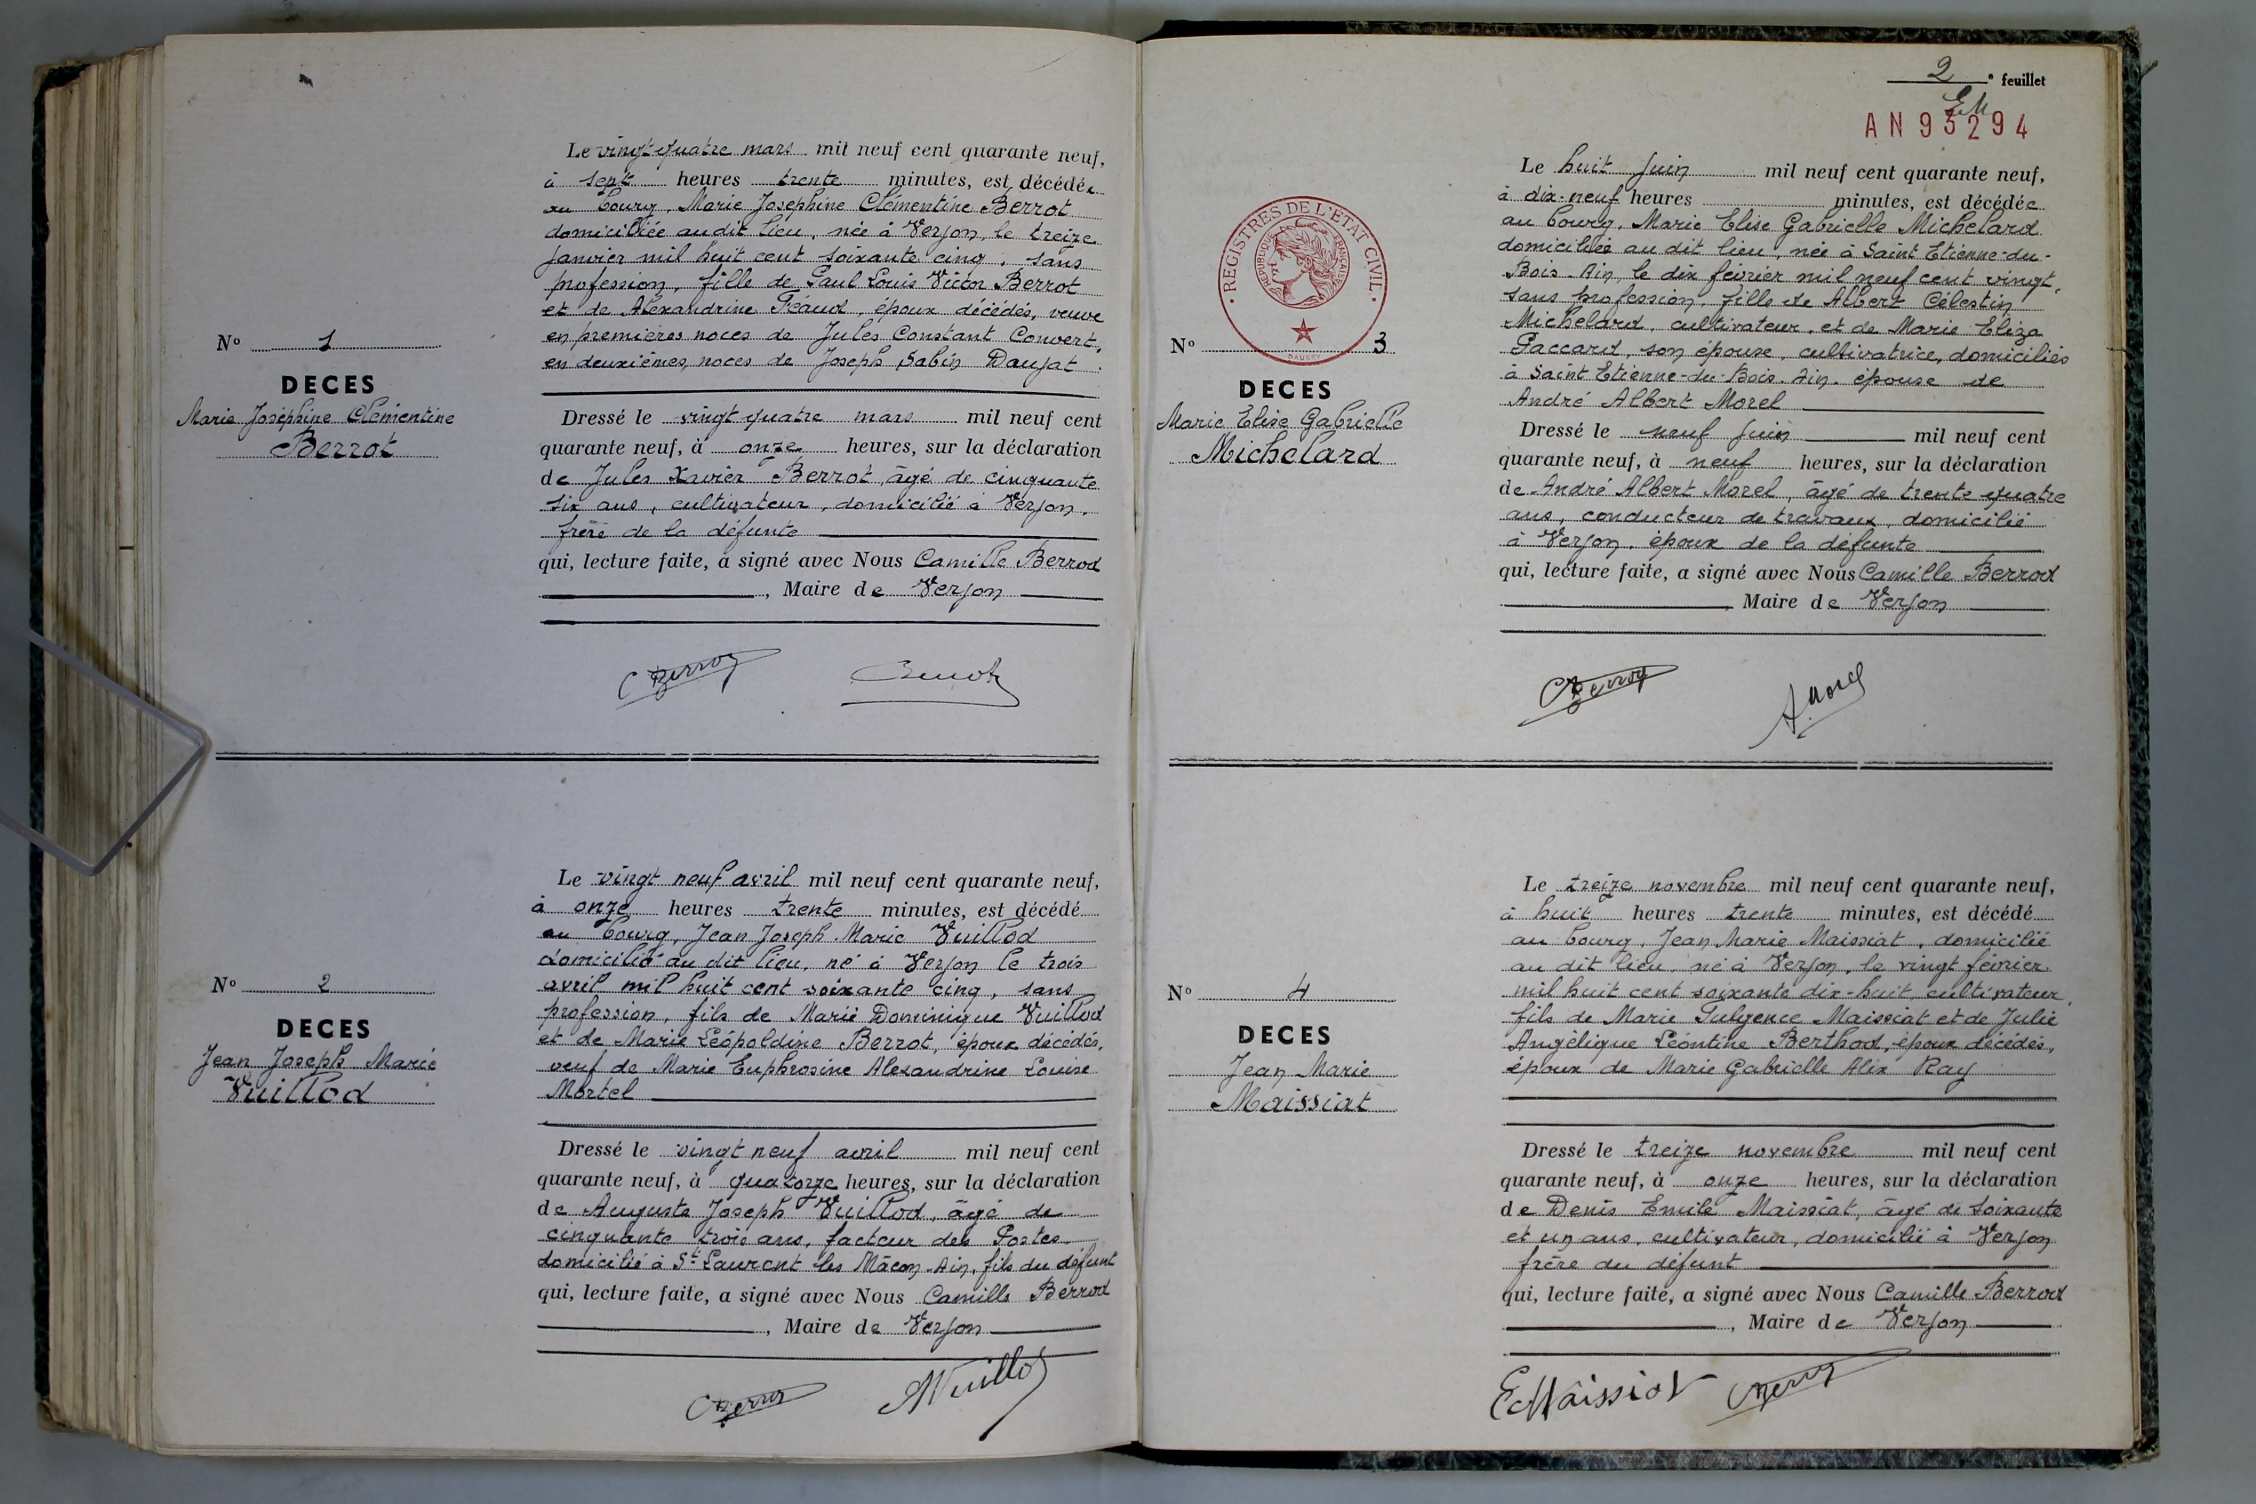 Le vingt quatre mars mil neuf cent quarante neuf,
à sept heures trente minutes, est décédée
au bourg, Marie Josephine Clementine Berrot
domiciliée au dit lieu, née à Verjon, le treize
janvier mil huit cent soixante cinq, sans
profession, fille de Paul Louis Victor Berrot
et de Alexandrine Féaud, époux décédés, veuve
en premières noces de Jules Constant Convert,
en deuxièmes noces de Joseph Sabin Daujat.
N° 1
DECES
Marie Joséphine Clémentine
Berrot
Dressé le vingt quatre mars mil neuf cent
quarante neuf, à onze heures, sur la déclaration
de Jules Xavier Berrot, âgé de cinquante
six ans, cultivateur, domicilié à Verjon,
frère de la défunte
qui, lecture faite, a signé avec Nous Camille Berrod
, Maire de Verjon
CBerrod
Berrot
Le vingt neuf avril mil neuf cent quarante neuf,
à onze heures trente minutes, est décédé
au bourg, Jean Joseph Marie Vuillod
domicilié au dit lieu, né à Verjon le trois
avril mil huit cent soixante cinq, sans
profession, fils de Marie Dominique Vuillod
et de Marie Léopoldine Berrot, époux décédés,
veuf de Marie Euphrosine Alexandrine Louise
Mortel
N° 2
DECES
Jean Joseph Marie
Vuillod
Dressé le vingt neuf avril mil neuf cent
quarante neuf, à quatorze heures, sur la déclaration
de Auguste Joseph Vuillod, âgé de
cinquante trois ans, facteur des Postes
domicilié à St Laurent les Mâcon-Ain, fils du défunt
qui, lecture faite, a signé avec Nous Camille Berrod
, Maire de Verjon
CBerrod
AVuillod
2e feuillet
EM
AN93294
Le huit juin mil neuf cent quarante neuf,
à dix-neuf heures minutes, est décédée
au bourg, Marie Elise Gabrielle Michelard
domiciliée au dit lieu, née à Saint Etienne-du-
Bois-Ain, le dix février mil neuf cent vingt,
sans profession, fille de Albert Célestin
Michelard, cultivateur, et de Marie Eliza
Paccard, son épouse, cultivatrice, domiciliés
à Saint Etienne-du-Bois-Ain. épouse de
André Albert Morel
REGISTRES DE L'ETAT CIVIL
REPUBLIQUE FRANÇAISE
N° 3
DECES
Marie Elise Gabrielle
Michelard
Dressé le neuf juin mil neuf cent
quarante neuf, à neuf heures, sur la déclaration
de André Albert Morel, âgé de trente quatre
ans, conducteur de travaux, domicilié
à Verjon, époux de la défunte
qui, lecture faite, a signé avec Nous Camille Berrod
, Maire de Verjon
CBerrod
A.Morel
Le treize novembre mil neuf cent quarante neuf,
à huit heures trente minutes, est décédé
au bourg, Jean Marie Maissiat, domicilié
au dit lieu, né à Verjon, le vingt février
mil huit cent soixante dix-huit, cultivateur,
fils de Marie Fulgence Maissiat et de Julie
Angélique Léontine Berthod, époux décédés,
époux de Marie Gabrielle Alix Ray
N° 4
DECES
Jean Marie
Maissiat
Dressé le treize novembre mil neuf cent
quarante neuf, à onze heures, sur la déclaration
de Denis Emile Maissiat, âgé de soixante
et un ans, cultivateur, domicilié à Verjon
frère du défunt
qui, lecture faite, a signé avec Nous Camille Berrod
, Maire de Verjon
EMaissiat
CBerrod